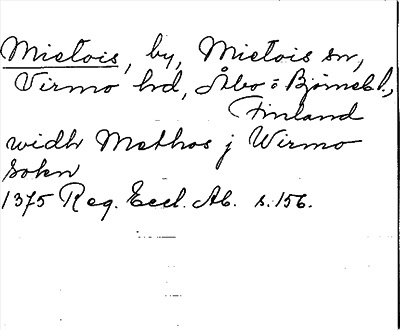 Mietois, by, Mietois sn,
Virmo hd, Åbo o Björneb.l.,
Finland
widh Methos j Wirmo
sokn
1375 Reg. Eccl. Ab. s. 156.